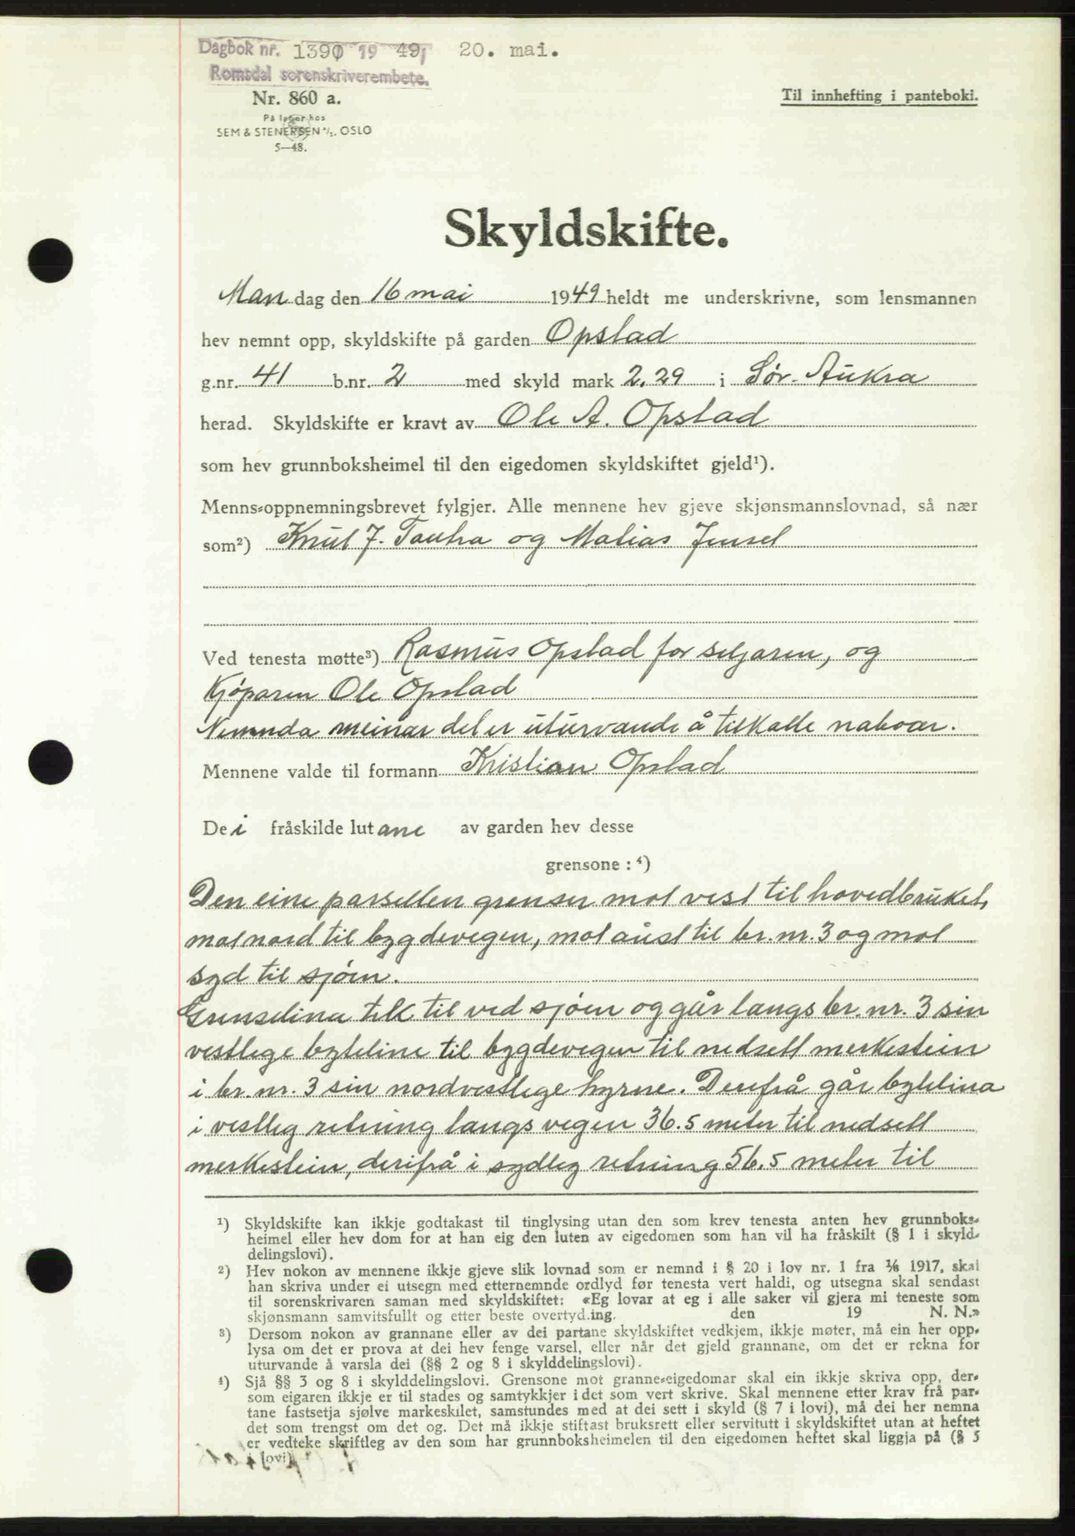 Dagbok nr. 1390 19 49, 20. mai.
Romsdal sorenskriverembete.
Nr. 860 a.
Til innhefting i panteboki.
På lager hos
SEM & STENERSEN A/S. OSLO
5—48.
Skyldskifte.
Man dag den 16 mai 1949 heldt me underskrivne, som lensmannen
hev nemnt opp, skyldskifte på garden Opstad
g.nr. 41 b.nr. 2 med skyld mark 2,29 i Sør-Aukra
herad. Skyldskifte er kravt av Ole A. Opstad
som hev grunnboksheimel til den eigedomen skyldskiftet gjeld¹).
Menns-oppnemningsbrevet fylgjer. Alle mennene hev gjeve skjønsmannslovnad, så nær
som²) Knut J. Tautra og Matias Jensel
Ved tenesta møtte³) Rasmus Opstad for seljaren, og
Kjøparen Ole Opstad
Nemnda meinar det er uturvande å tilkalle naboar.
Mennene valde til formann Kristian Opstad
Dei fråskilde lutane av garden hev desse
grensone : ⁴)
Den eine parsellen grenser mot vest til hovedbruket,
mot nord til bygdevegen, mot aust til br. nr. 3 og mot
syd til sjøen.
Grenselina tek til ved sjøen og går langs br. nr. 3 sin
vestlege byteline til bygdevegen til nedsett merkestein
i br. nr. 3 sin nordvestlege hyrne. Derifrå går bytelina
i vestleg retning langs vegen 36.5 meter til nedsett
merkestein, derifrå i sydleg retning 56.5 meter til
¹) Skyldskifte kan ikkje godtakast til tinglysing utan den som krev tenesta anten hev grunnboks-
heimel eller hev dom for at han eig den luten av eigedomen som han vil ha fråskilt (§ 1 i skyld-
delingslovi).
²) Hev nokon av mennene ikkje gjeve slik lovnad som er nemnd i § 20 i lov nr. 1 fra 1/6 1917, skal
han skriva under ei utsegn med etternemnde ordlyd før tenesta vert haldi, og utsegna skal sendast
til sorenskrivaren saman med skyldskiftet: «Eg lovar at eg i alle saker vil gjera mi teneste som
skjønsmann samvitsfullt og etter beste overtyding. den 19 N. N.»
³) Dersom nokon av grannane eller av dei partane skyldskiftet vedkjem, ikkje møter, må ein her opp-
lysa om det er prova at dei hev fenge varsel, eller når det gjeld grannane, om det er rekna for
uturvande å varsla dei (§§ 2 og 8 i skylddelingslovi).
⁴) Sjå §§ 3 og 8 i skylddelingslovi. Grensone mot granne-eigedomar skal ein ikkje skriva opp, der-
som eigaren ikkje er til stades og samtykkjer i det som vert skrive. Skal mennene etter krav frå par-
tane fastsetja sjølve markeskilet, samstundes med at dei sett i skyld (§ 7 i lovi), må dei her nemna
det som trengst om det og. Det må ikkje stiftast bruksrett eller servitutt i skyldskiftet utan at heftet
er vedteke skriftleg av den som har grunnboksheimelen til den eigedomen heftet skal liggja på (§ 5
i lovi)